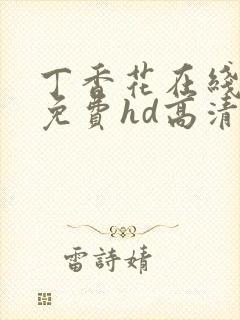 丁香花在綫
免費hd高清
雷詩婧